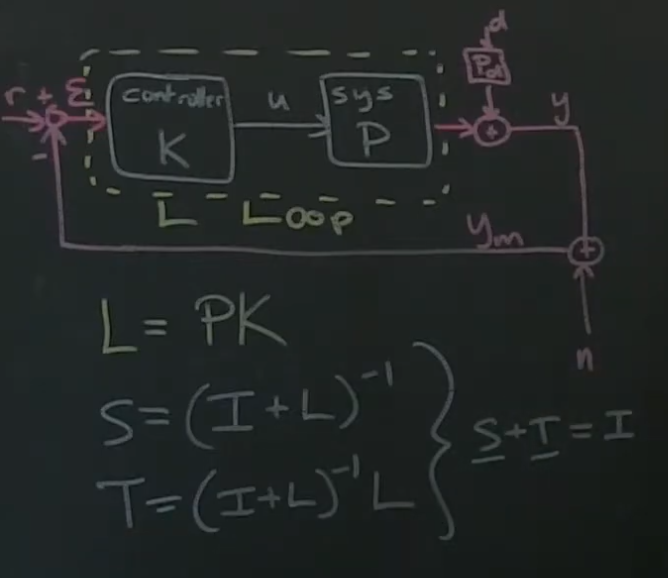 d
P_d
r + ε
controller
K
u
sys
P
+
y
-
L Loop
y_m
+
n
L = PK
S = (I + L)^{-1}
T = (I + L)^{-1} L
S + T = I